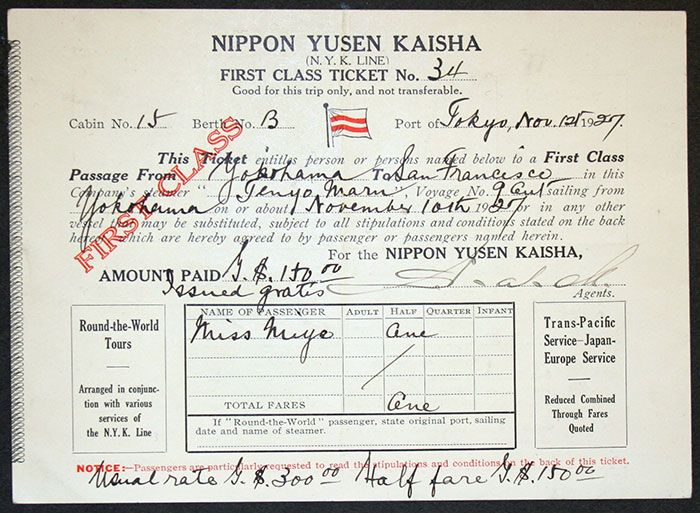 NIPPON YUSEN KAISHA
(N.Y.K. LINE)
FIRST CLASS TICKET No. 34
Good for this trip only, and not transferable.
Cabin No. 15 Berth No. B Port of Tokyo, Nov. 1st 1927.
This Ticket entitles person or persons named below to a First Class
Passage From Yokohama To San Francisco in this
Company's steamer " Tenyo Maru Voyage No. 9 sailing from
Yokohama on or about November 10th 1927 or in any other
vessel that may be substituted, subject to all stipulations and conditions stated on the back
hereof which are hereby agreed to by passenger or passengers named herein.
FIRST CLASS
For the NIPPON YUSEN KAISHA,
AMOUNT PAID G.$. 150.00
Issued gratis
Agents.
Round-the-World
Tours
Arranged in conjunc-
tion with various
services of
the N.Y.K. Line
NAME OF PASSENGER ADULT HALF QUARTER INFANT
Miss One
TOTAL FARES One
If "Round-the-World" passenger, state original port, sailing
date and name of steamer.
Trans-Pacific
Service—Japan-
Europe Service
Reduced Combined
Through Fares
Quoted
NOTICE:—Passengers are particularly requested to read the stipulations and conditions on the back of this ticket.
Usual rate G.$. 300.00 Half fare G.$. 150.00